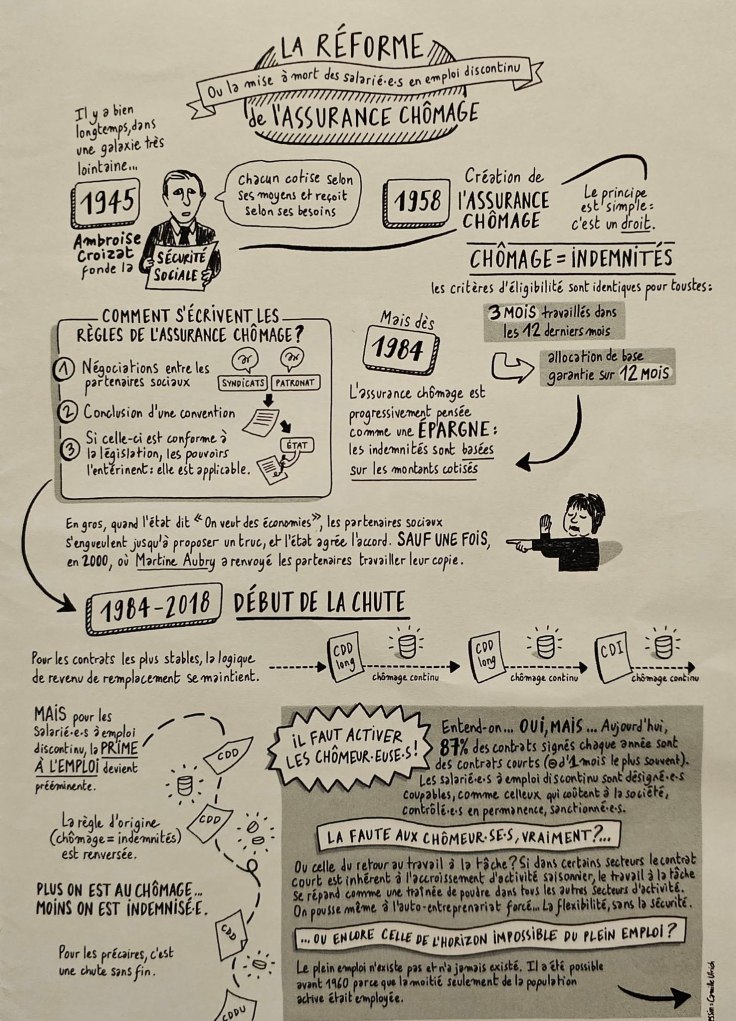 LA RÉFORME
Ou la mise à mort des salarié·e·s en emploi discontinu
de l'ASSURANCE CHÔMAGE
Il y a bien
longtemps, dans
une galaxie très
lointaine...
1945
Ambroise
Croizat
fonde la
SÉCURITÉ
SOCIALE
Chacun cotise selon
ses moyens et reçoit
selon ses besoins
1958
Création de
l'ASSURANCE
CHÔMAGE
Le principe
est simple:
c'est un droit.
CHÔMAGE = INDEMNITÉS
les critères d'éligibilité sont identiques pour toustes:
3 MOIS travaillés dans
les 12 derniers mois
allocation de base
garantie sur 12 MOIS
COMMENT S'ÉCRIVENT LES
RÈGLES DE L'ASSURANCE CHÔMAGE?
1 Négociations entre les
partenaires sociaux
SYNDICATS
PATRONAT
2 Conclusion d'une convention
3 Si celle-ci est conforme à
la législation, les pouvoirs
l'entérinent: elle est applicable.
ÉTAT
Mais dès
1984
L'assurance chômage est
progressivement pensée
comme une ÉPARGNE:
les indemnités sont basées
sur les montants cotisés
En gros, quand l'état dit "On veut des économies", les partenaires sociaux
s'engueulent jusqu'à proposer un truc, et l'état agrée l'accord. SAUF UNE FOIS,
en 2000, où Martine Aubry a renvoyé les partenaires travailler leur copie.
1984-2018
DÉBUT DE LA CHUTE
Pour les contrats les plus stables, la logique
de revenu de remplacement se maintient.
CDD
long
chômage continu
CDD
long
chômage continu
CDI
chômage continu
MAIS pour les
Salarié·e·s à emploi
discontinu, la PRIME
À L'EMPLOI devient
prééminente.
CDD
La règle d'origine
(chômage = indemnités)
est renversée.
CDD
PLUS ON EST AU CHÔMAGE...
MOINS ON EST INDEMNISÉ·E.
CDD
Pour les précaires, c'est
une chute sans fin.
CDDU
IL FAUT ACTIVER
LES CHÔMEUR·EUSE·S!
Entend-on... OUI, MAIS... Aujourd'hui,
87% des contrats signés chaque année sont
des contrats courts (⊖ d'1 mois le plus souvent).
Les salarié·e·s à emploi discontinu sont désigné·e·s
coupables, comme celleux qui coûtent à la société,
contrôlé·e·s en permanence, sanctionné·e·s.
LA FAUTE AUX CHÔMEUR·SE·S, VRAIMENT?...
Ou celle du retour au travail à la tâche? Si dans certains secteurs le contrat
court est inhérent à l'accroissement d'activité saisonnier, le travail à la tâche
se répand comme une traînée de poudre dans tous les autres secteurs d'activité.
On pousse même à l'auto-entreprenariat forcé... La flexibilité, sans la sécurité.
... OU ENCORE CELLE DE L'HORIZON IMPOSSIBLE DU PLEIN EMPLOI?
Le plein emploi n'existe pas et n'a jamais existé. Il a été possible
avant 1960 parce que la moitié seulement de la population
active était employée.